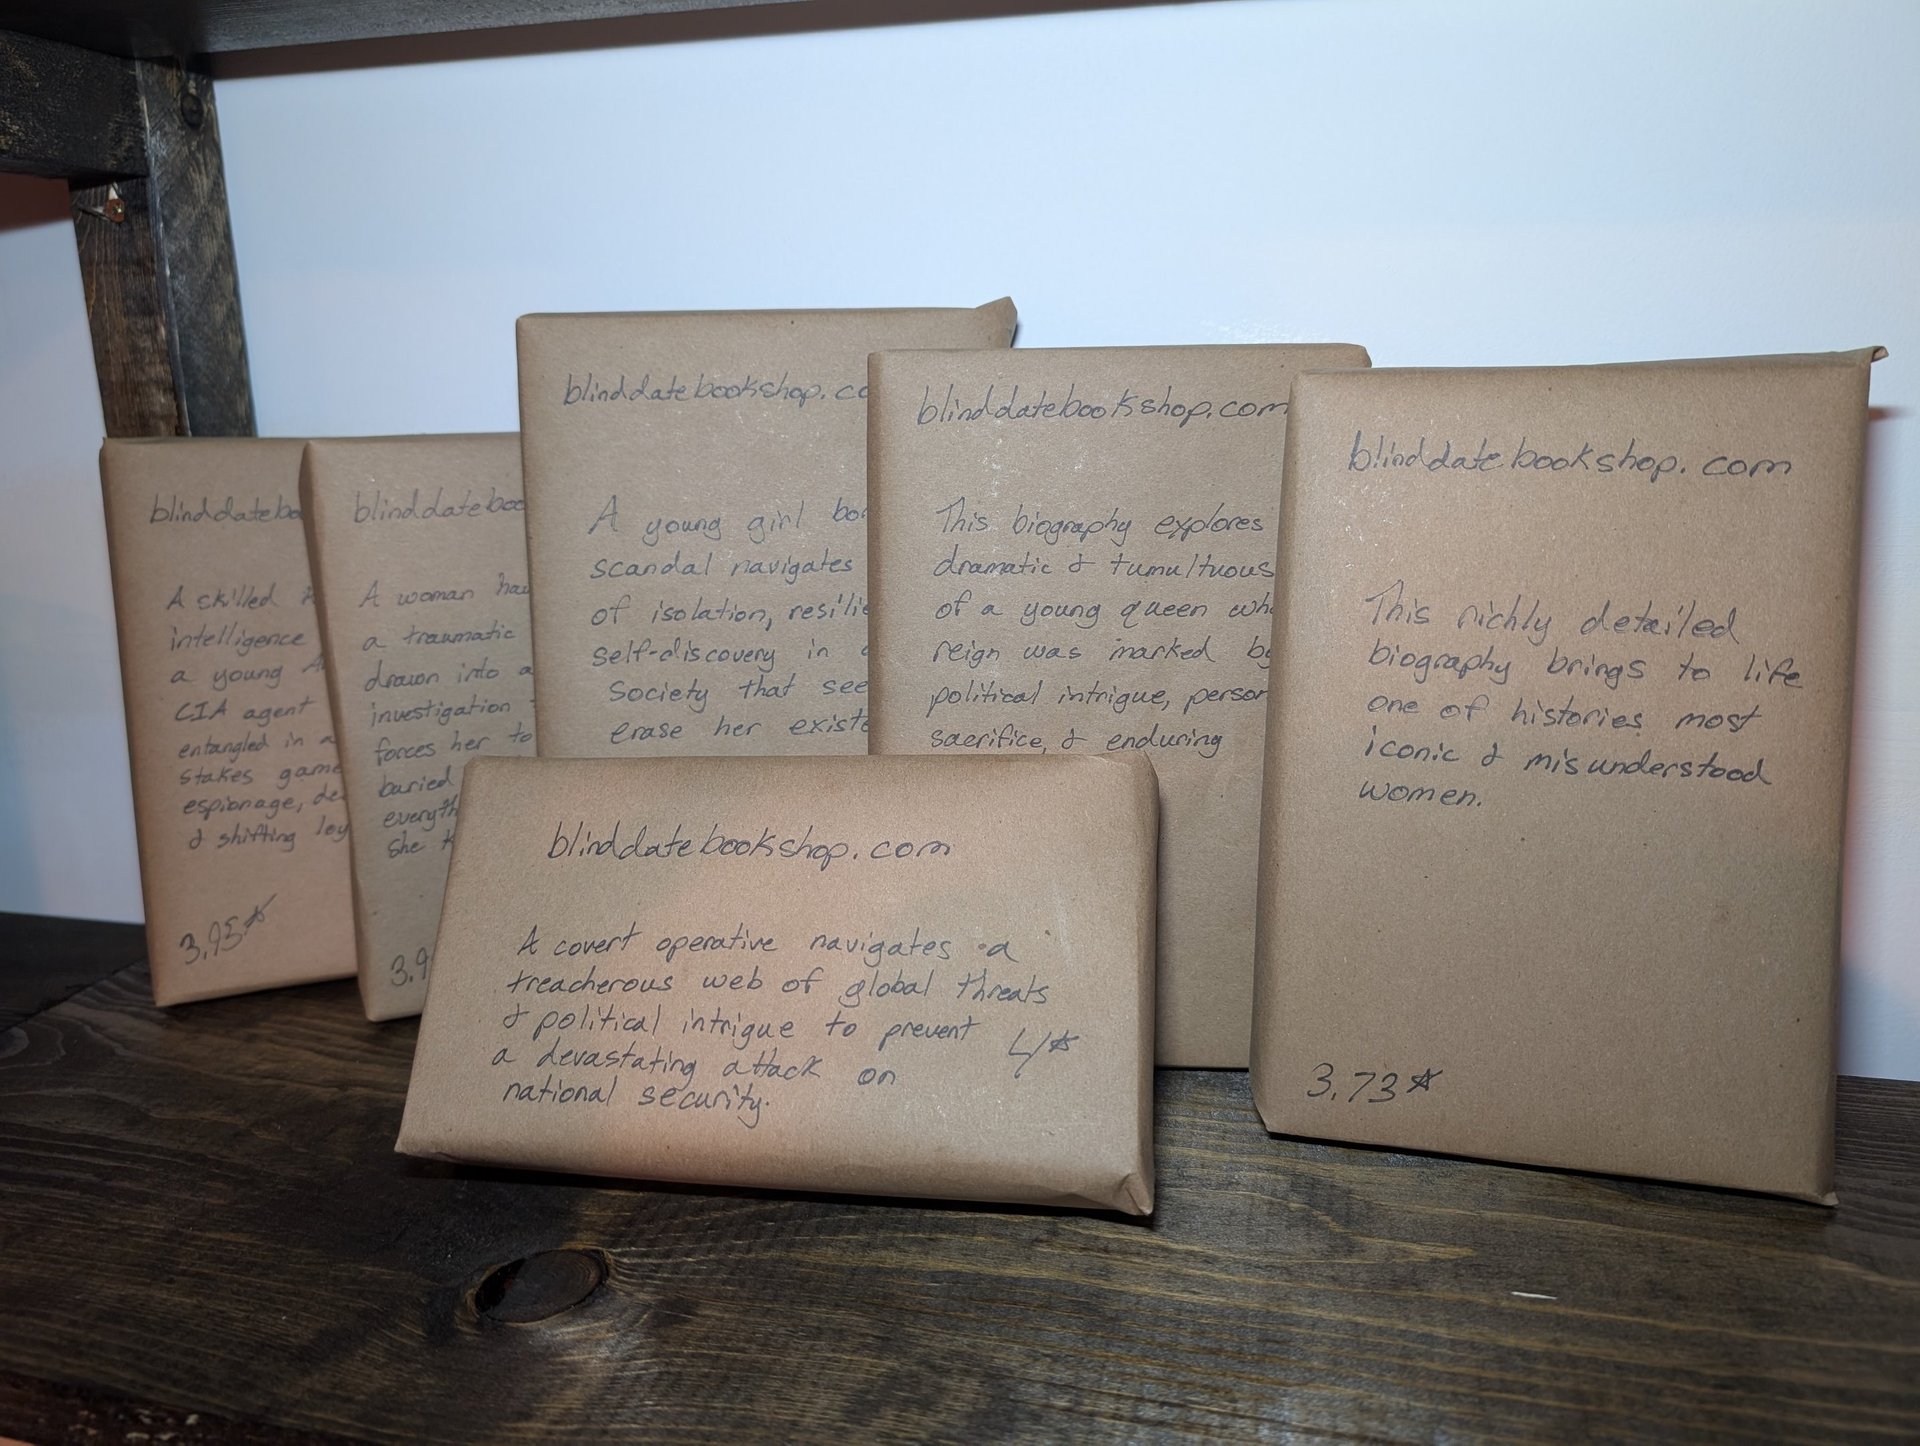 blinddatebo
A skilled
intelligence
a young
CIA agent
entangled in a
stakes game
espionage, de
& shifting loy
3.95☆
blinddateboo
A woman hau
a traumatic
drawn into a
investigation
forces her to
buried
everyth
she k
3.9
blinddatebookshop.co
A young girl bor
scandal navigates
of isolation, resilie
self-discovery in a
society that see
erase her existe
blinddatebookshop.com
This biography explores
dramatic & tumultuous
of a young queen who
reign was marked by
political intrigue, person
sacrifice, & enduring
blinddatebookshop.com
This richly detailed
biography brings to life
one of histories most
iconic & misunderstood
women.
3.73☆
blinddatebookshop.com
A covert operative navigates a
treacherous web of global threats
& political intrigue to prevent
a devastating attack on
national security.
4☆